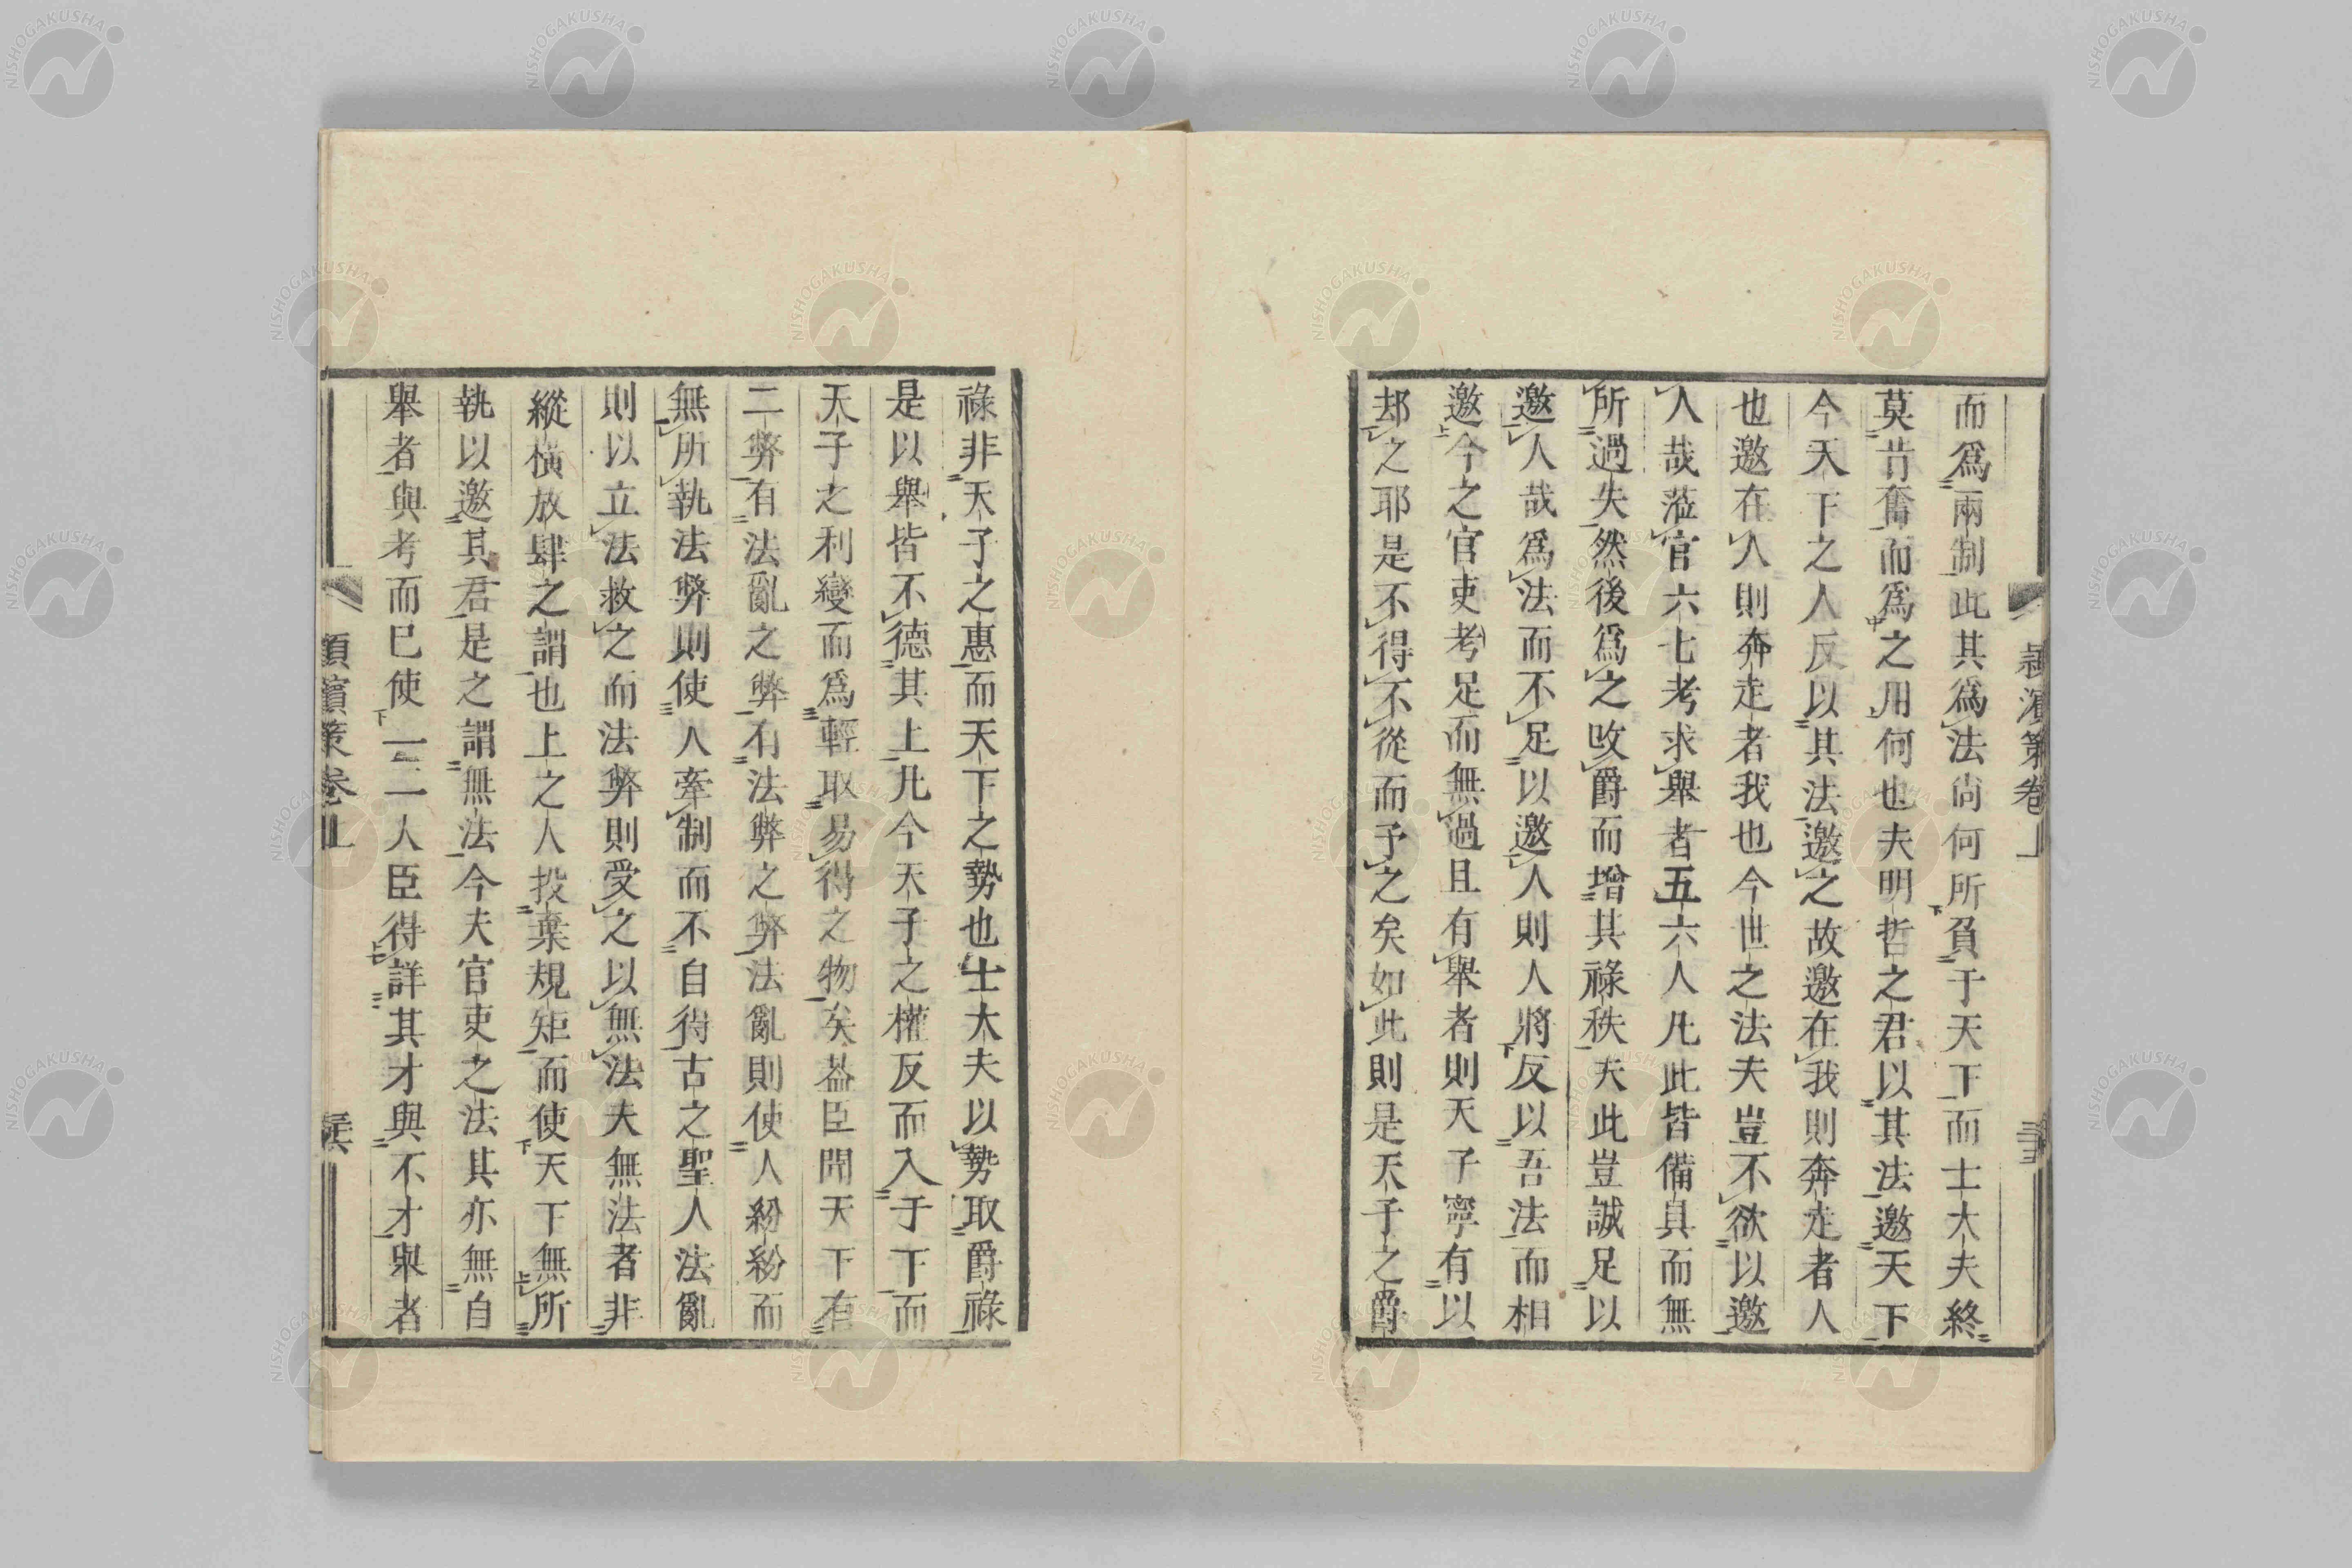 而爲兩制此其爲法尚何所負于天下而士大夫終
莫肯奮而爲之用何也夫明哲之君以其法邀天下
今天下之人反以其法邀之故邀在我則奔走者人
也邀在人則奔走者我也今世之法夫豈不欲以邀
人哉蒞官六七考求舉者五六人凡此皆備具而無
所過失然後爲之改爵而增其祿秩夫此豈誠足以
邀人哉爲法而不足以邀人則人將反以吾法而相
邀今之官吏考足而無過且有舉者則天子寧有以
却之耶是不得不從而予之矣如此則是天子之爵
祿非天子之惠而天下之勢也士大夫以勢取爵祿
是以舉皆不德其上凡今天子之權反而入于下而
天子之利變而爲輕取易得之物矣蓋臣聞天下有
二弊有法亂之弊有法弊之弊法亂則使人紛紛而
無所執法弊則使人牽制而不自得古之聖人法亂
則以立法救之而法弊則受之以無法夫無法者非
縱橫放肆之謂也上之人投棄規矩而使天下無所
執以邀其君是之謂無法今夫官吏之法其亦無自
舉者與考而已使一二人臣得詳其才與不才舉者
潁濱策卷上
NISHOGAKUSHA